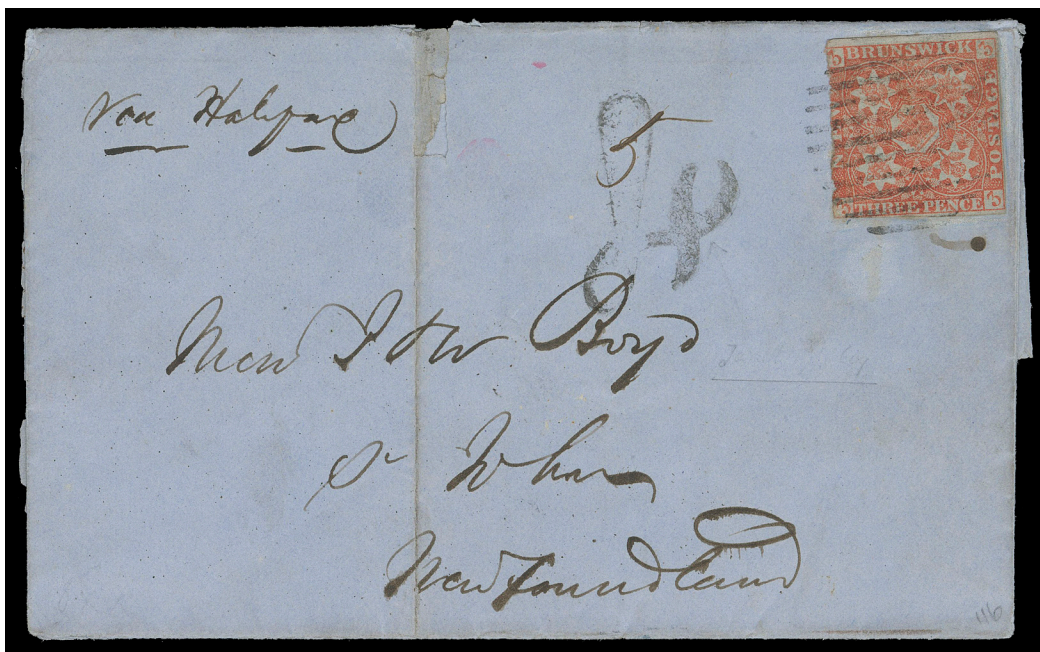 Via Halifax
5
BRUNSWICK
POSTAGE
THREE PENCE
4
Boyd
St Johns
Newfoundland
116